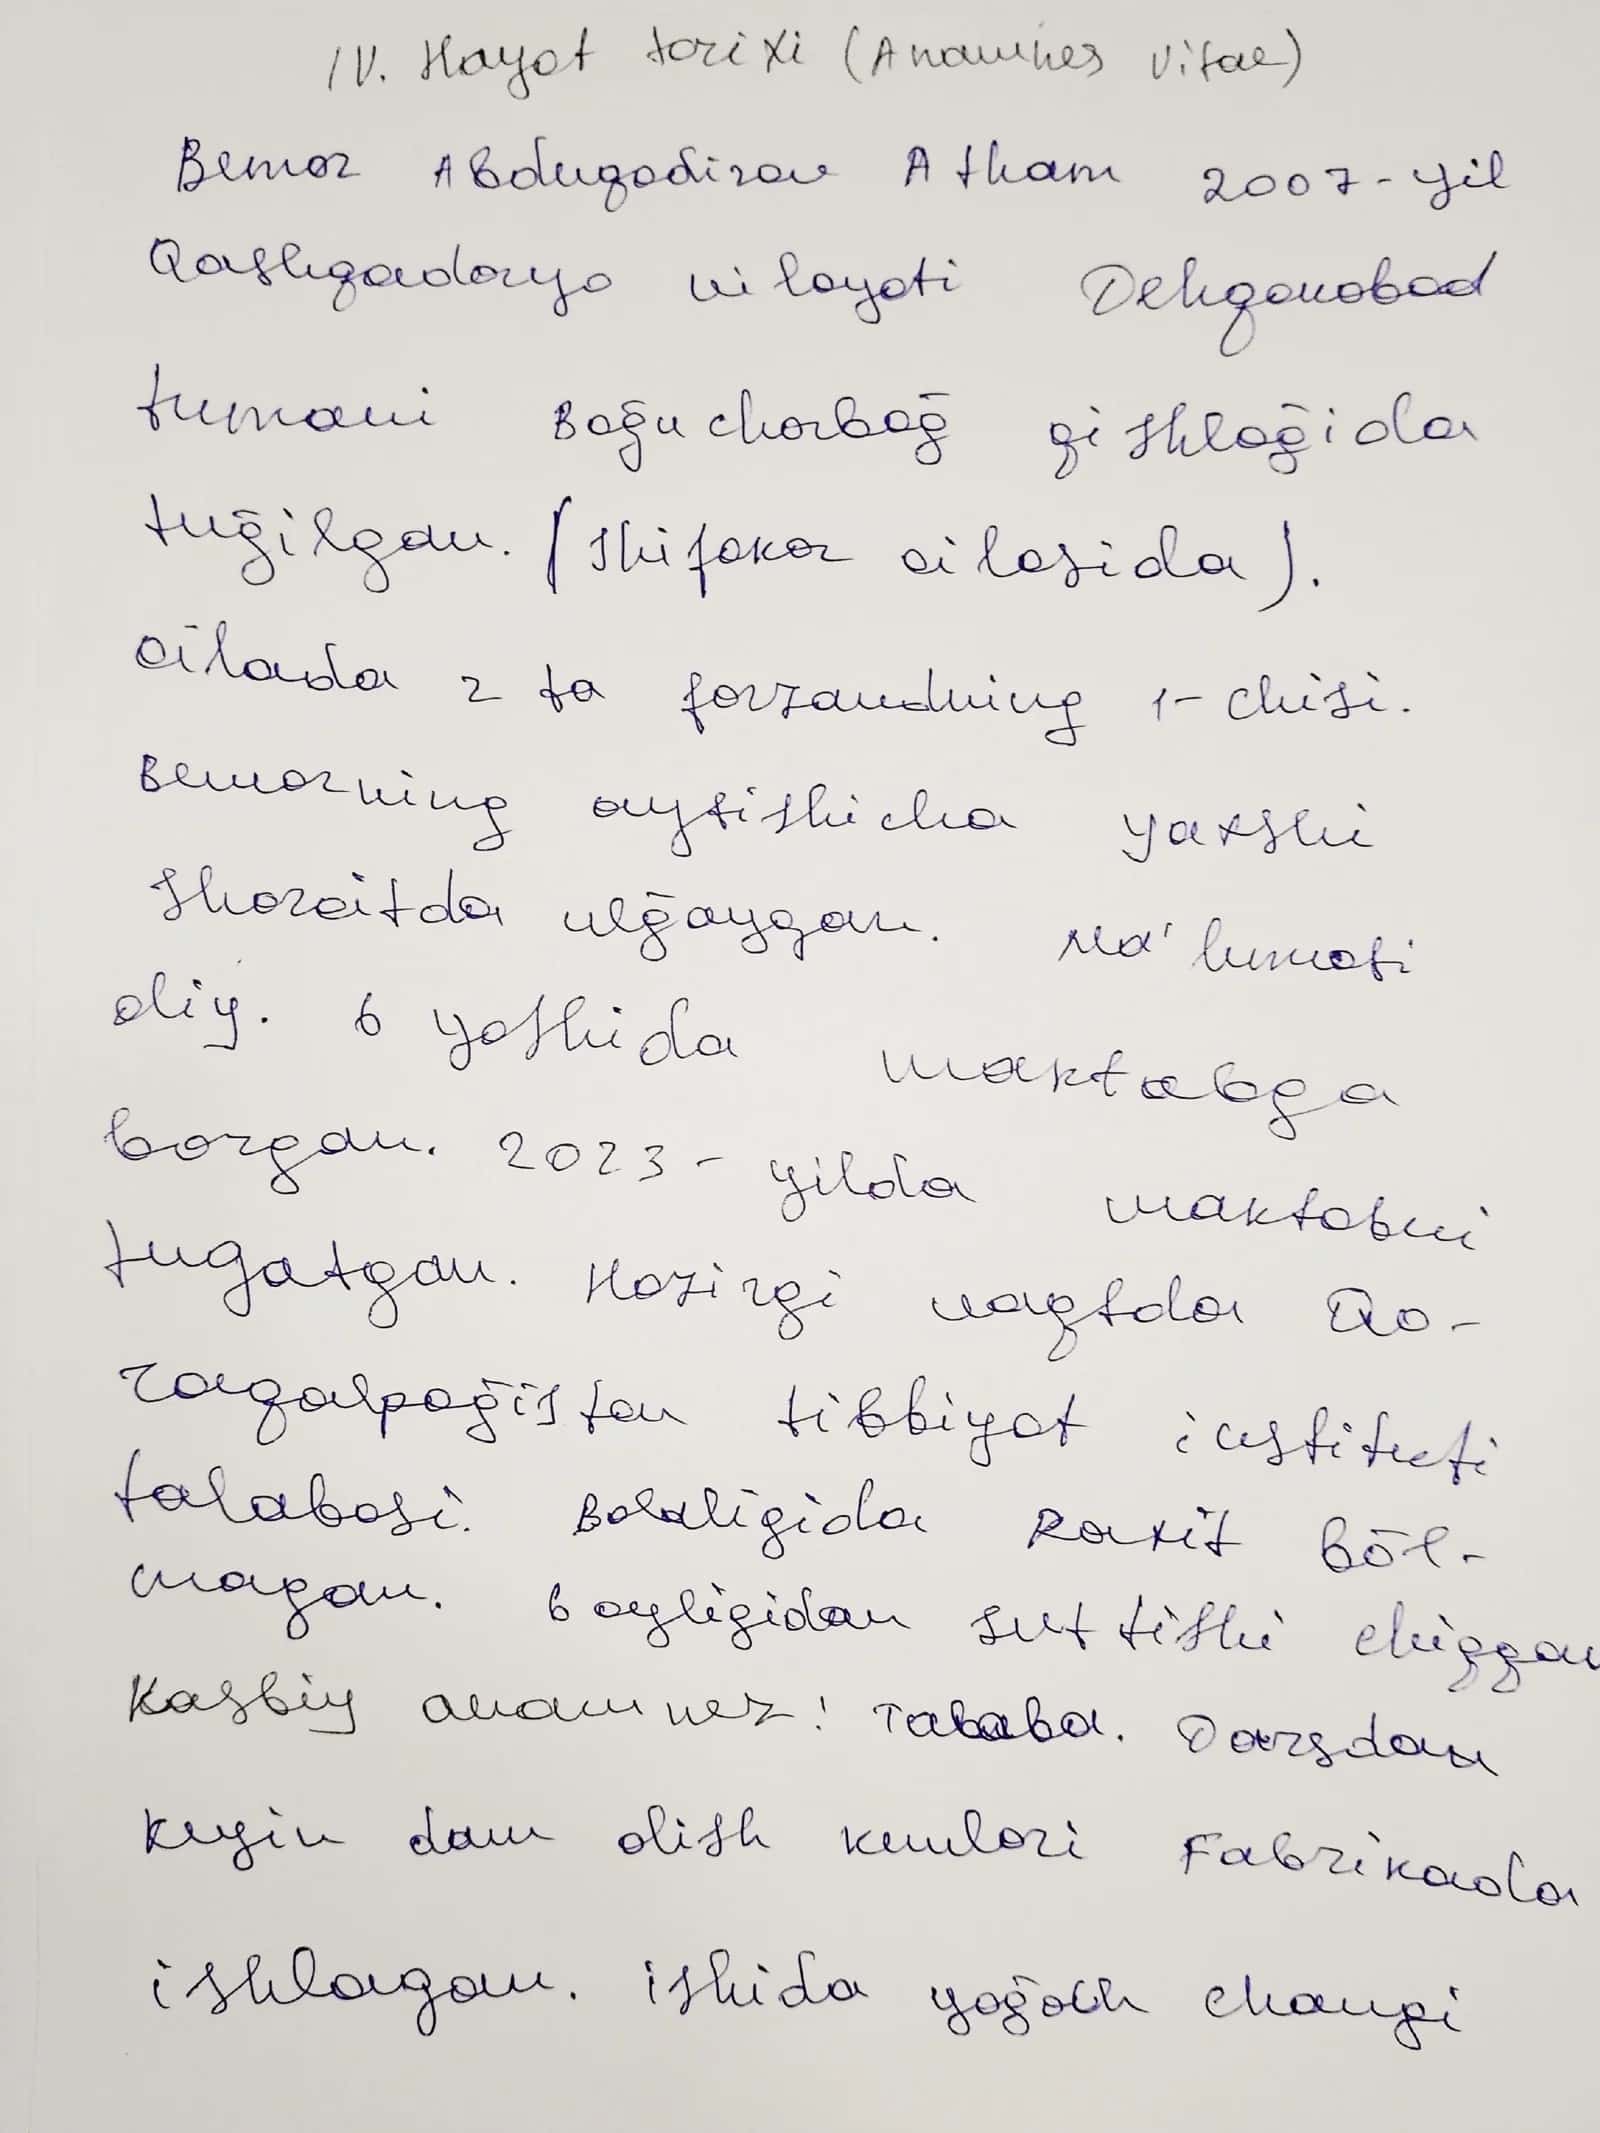 IV. Hayot torixi (Anamnes vitae)
Bemor Abduqodirov Atham 2007-yil
Qashqadaryo viloyati Dehqonobod
tumani Boḡuchorboḡ qishloḡida
tuḡilgan. (Shifokor oilasida).
Oilada 2 ta farzandning 1-chisi.
Bemorning aytishicha yaxshi
sharoitda ulḡaygan. Ma'lumoti
oliy. 6 yoshida maktabga
borgan. 2023-yilda maktabni
tugatgan. Hozirgi vaqtda Qo-
raqalpoḡiston tibbiyot instituti
talabasi. Bolaligida Raxit bōl-
magan. 6 oyligidan sut tishi chiqqan
Kasbiy anamnez: Talaba. Darsdan
keyin dam olish kunlari Fabrikada
ishlagan. ishida yoḡoch changi